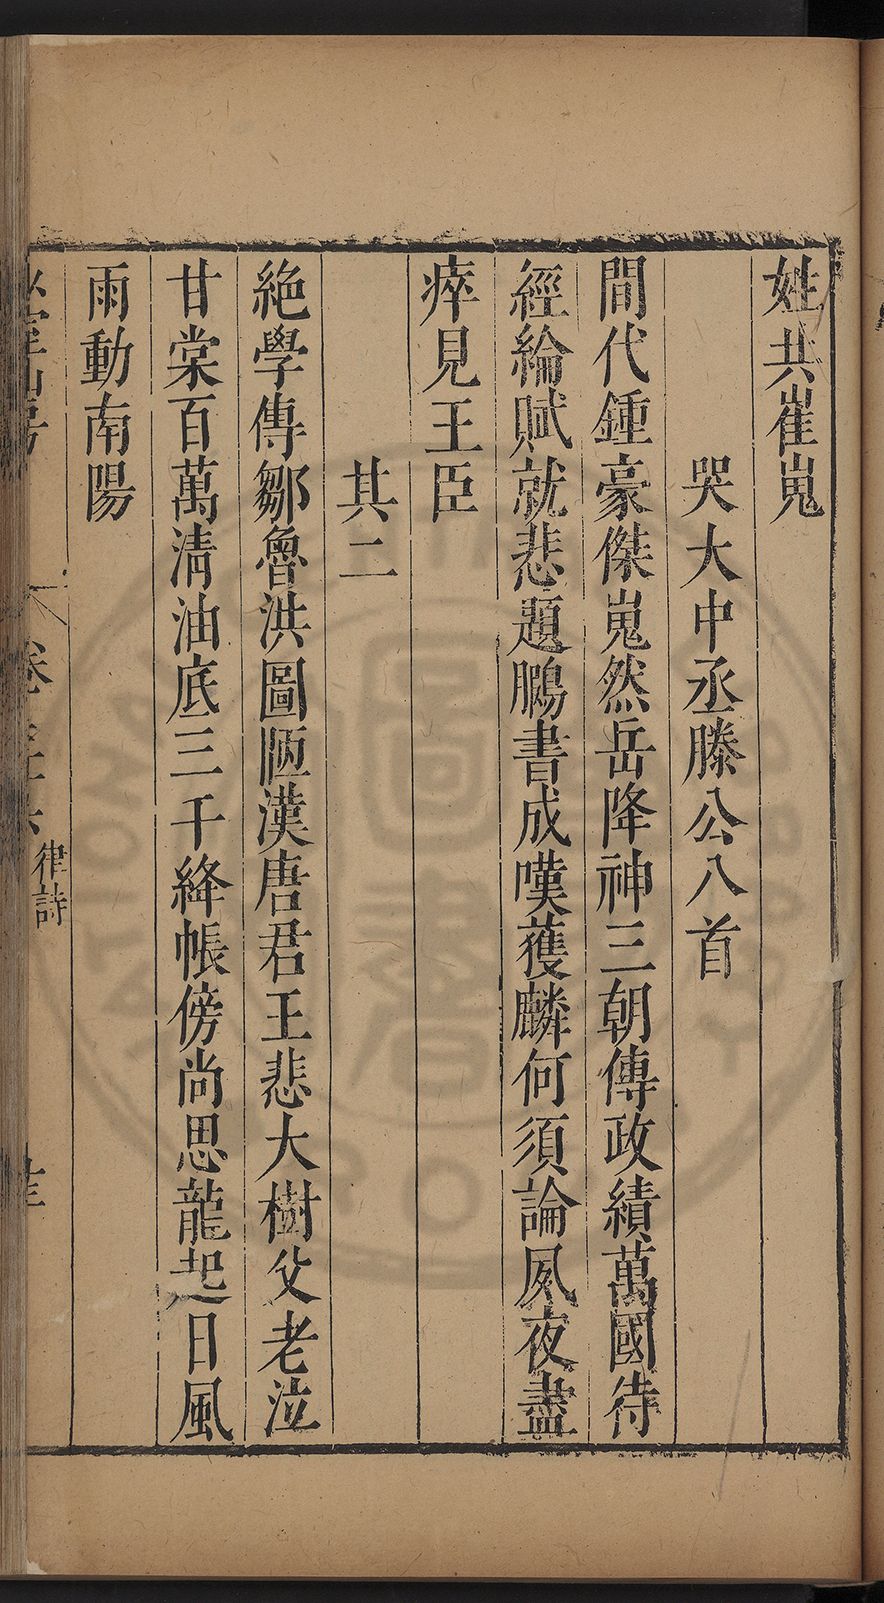 姓共崔嵬
哭大中丞滕公八首
間代鍾豪傑嵬然岳降神三朝傳政績萬國待
經綸賦就悲題鵩書成嘆獲麟何須論夙夜盡
瘁見王臣
其二
絶學傳鄒魯洪圖陋漢唐君王悲大樹父老泣
甘棠百萬淸油底三千絳帳傍尚思龍起日風
雨動南陽
律詩